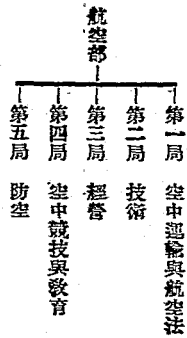 航空部
第一局　空中運輸與航空法
第二局　技術
第三局　經營
第四局　空中競技與敎育
第五局　防空